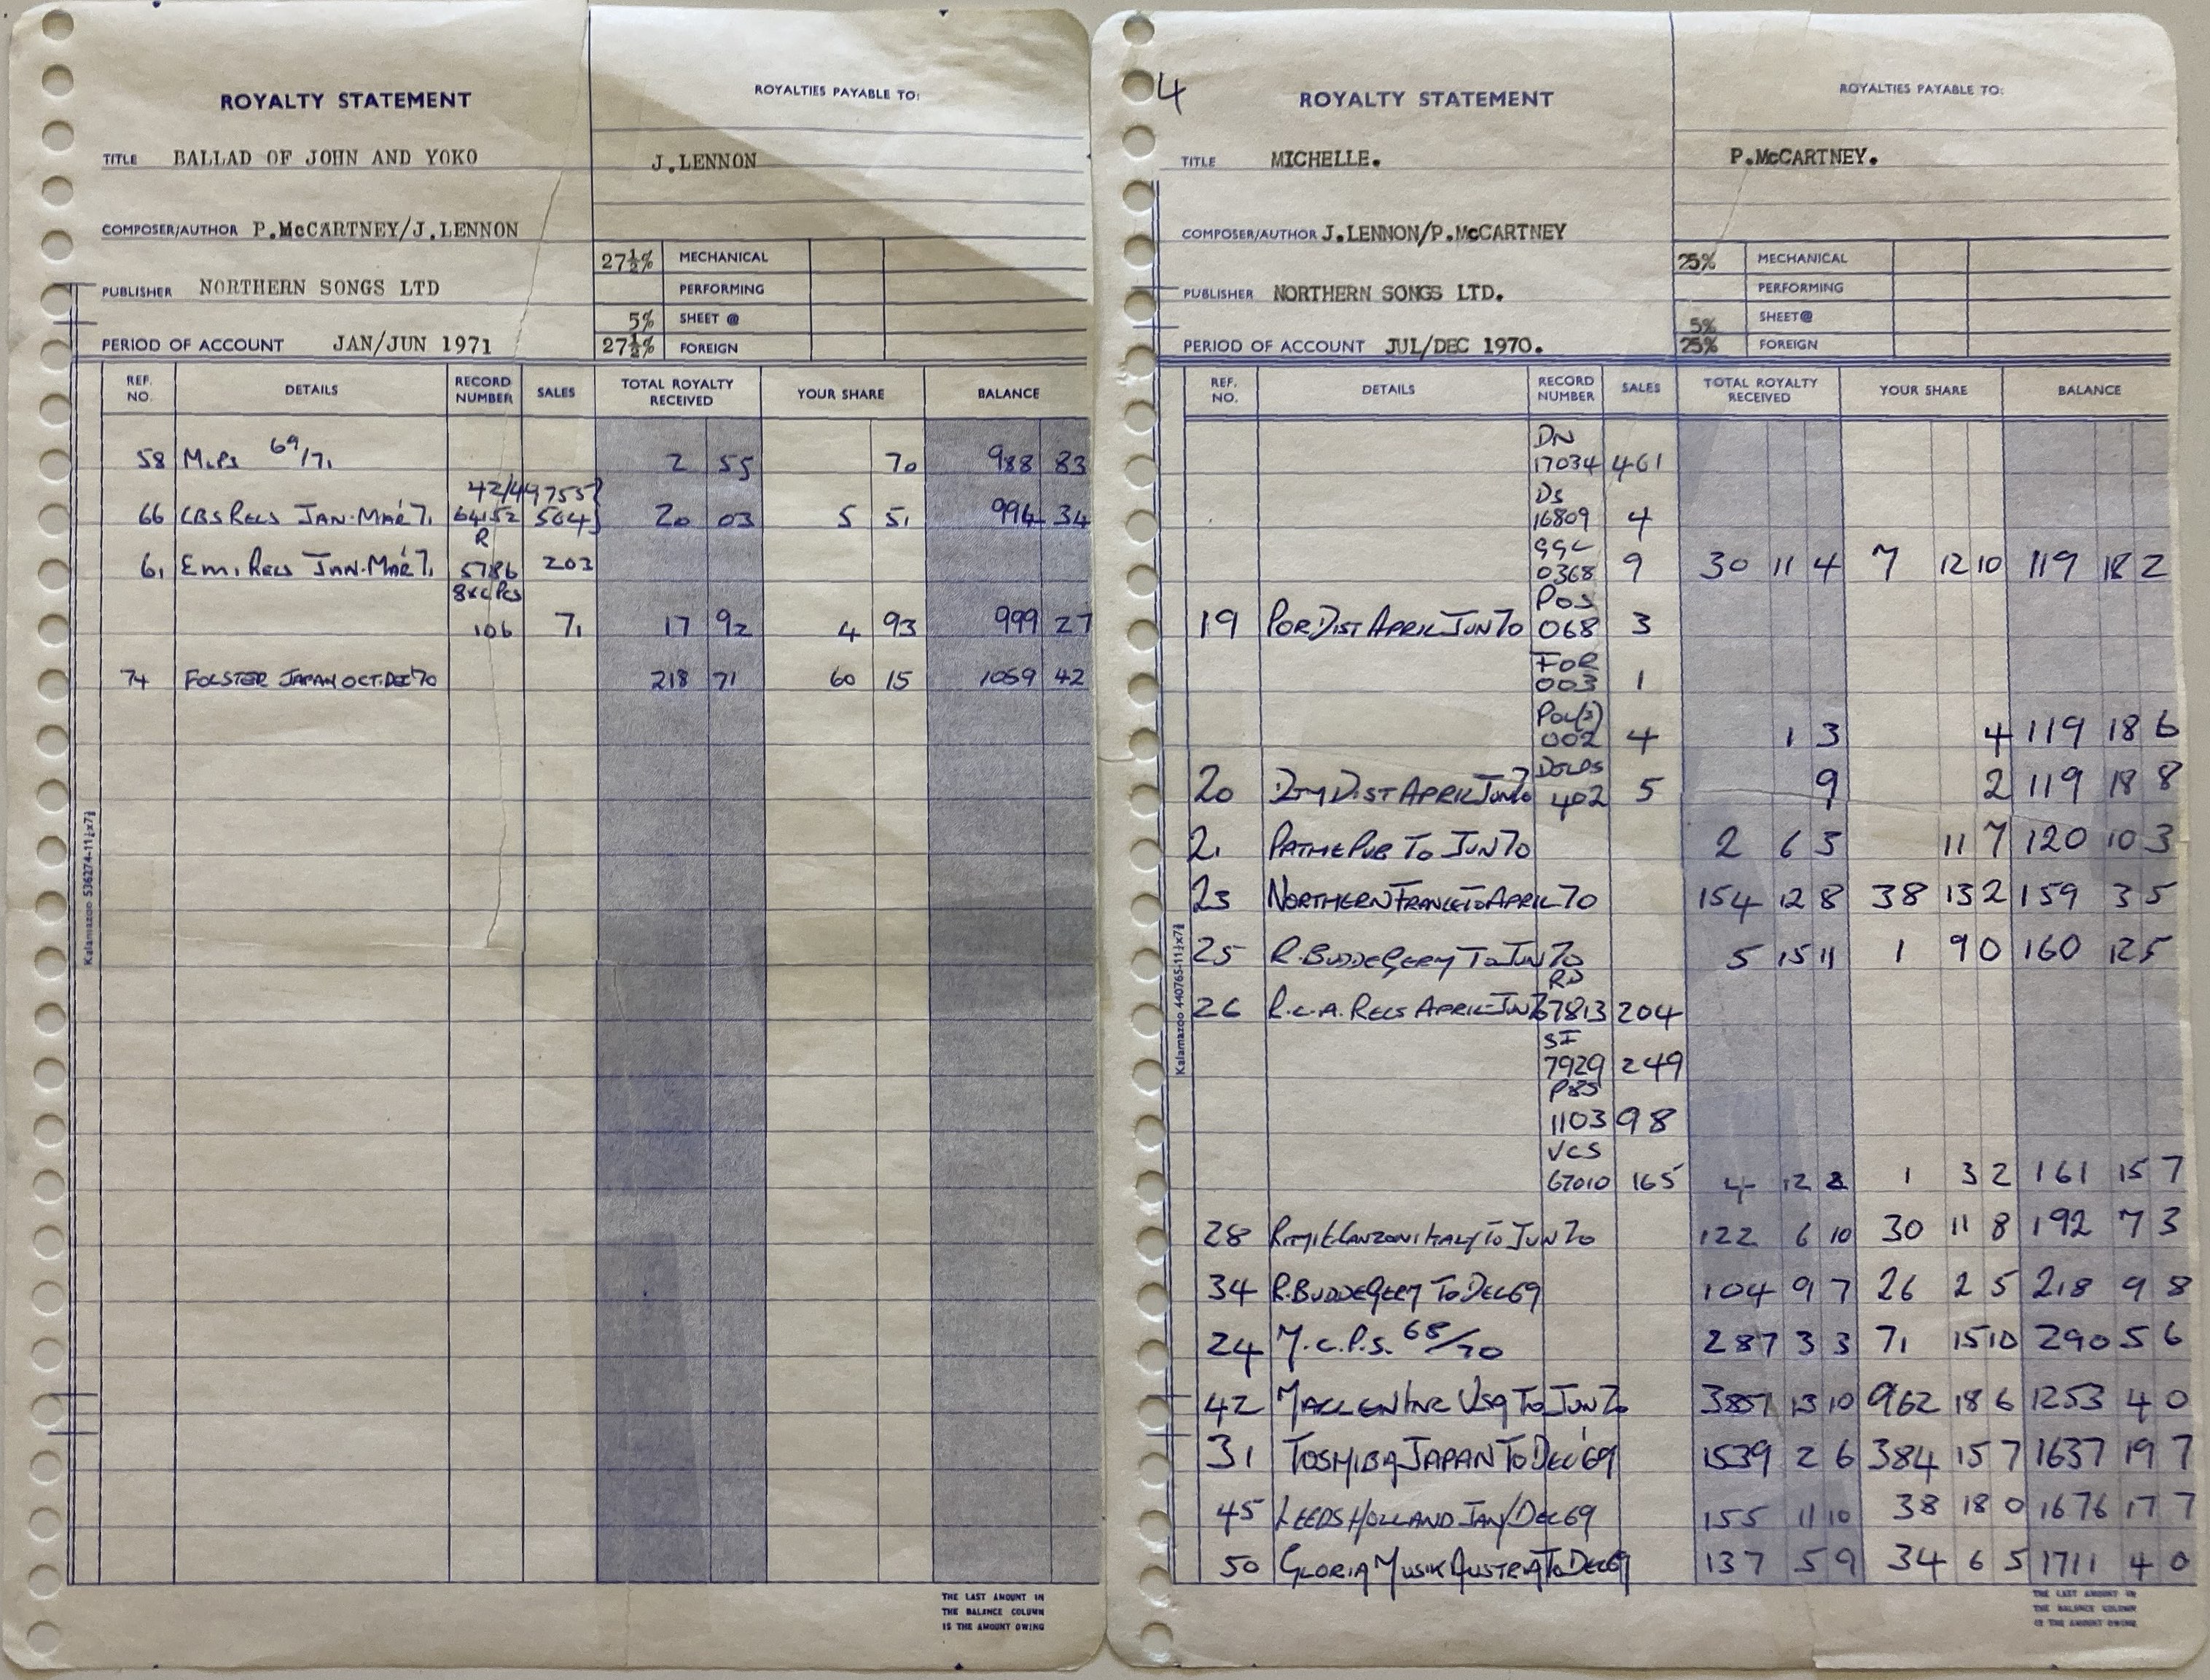 ROYALTY STATEMENT
ROYALTIES PAYABLE TO:
TITLE BALLAD OF JOHN AND YOKO
J.LENNON
COMPOSER/AUTHOR P.McCARTNEY/J.LENNON
27½% MECHANICAL
PERFORMING
PUBLISHER NORTHERN SONGS LTD
5% SHEET @
PERIOD OF ACCOUNT JAN/JUN 1971
27½% FOREIGN
REF. NO. DETAILS RECORD NUMBER SALES TOTAL ROYALTY RECEIVED YOUR SHARE BALANCE
58 M.C.P.S 69/71 2 55 70 988 83
42/49755}
66 CBS RECS JAN-MAR'71 64152 504} 20 03 5 51 994 34
R
61 EMI RECS JAN-MAR'71 5786 203
8XC PCS
106 71 17 92 4 93 999 27
74 FOLSTER JAPAN OCT.DEC'70 218 71 60 15 1059 42
Kalamazoo 536274-11¼x7¾
THE LAST AMOUNT IN
THE BALANCE COLUMN
IS THE AMOUNT OWING
4
ROYALTY STATEMENT
ROYALTIES PAYABLE TO:
TITLE MICHELLE.
P.McCARTNEY.
COMPOSER/AUTHOR J.LENNON/P.McCARTNEY
25% MECHANICAL
PERFORMING
PUBLISHER NORTHERN SONGS LTD.
5% SHEET@
PERIOD OF ACCOUNT JUL/DEC 1970.
25% FOREIGN
REF. NO. DETAILS RECORD NUMBER SALES TOTAL ROYALTY RECEIVED YOUR SHARE BALANCE
DN
17034 461
DS
16809 4
GGL
0368 9 30 11 4 7 12 10 119 18 2
POS
19 POR DIST APRIL JUN 70 068 3
FOR
003 1
POL(S)
002 4 1 3 4 119 18 6
20 DIST APRIL JUN 70 402 5 9 2 119 18 8
21 PATHE PUB TO JUN 70 2 6 3 11 7 120 10 3
23 NORTHERN FRANCE TO APRIL 70 154 12 8 38 13 2 159 3 5
25 R.BUDDE GERY TO JUN 70 5 15 11 1 9 0 160 12 5
RD
26 R.C.A. RECS APRIL-JUN 7813 204
SF
7929 249
PBS
1103 98
VCS
67010 165 4 12 8 1 3 2 161 15 7
28 CANZONI ITALY TO JUN 70 122 6 10 30 11 8 192 7 3
34 R.BUDDE GERY TO DEC 69 104 9 7 26 2 5 218 9 8
24 M.C.P.S. 68/70 287 3 3 71 15 10 290 5 6
42 MACLEN INC USA TO JUN 70 3851 13 10 962 18 6 1253 4 0
31 TOSHIBA JAPAN TO DEC'69 1539 2 6 384 15 7 1637 19 7
45 LEEDS HOLLAND JAN/DEC 69 155 11 10 38 18 0 1676 17 7
50 GLORIA MUSIK AUSTRIA TO DEC 69 137 5 9 34 6 5 1711 4 0
Kalamazoo 440765-11¼x7¾
THE LAST AMOUNT IN
THE BALANCE COLUMN
IS THE AMOUNT OWING